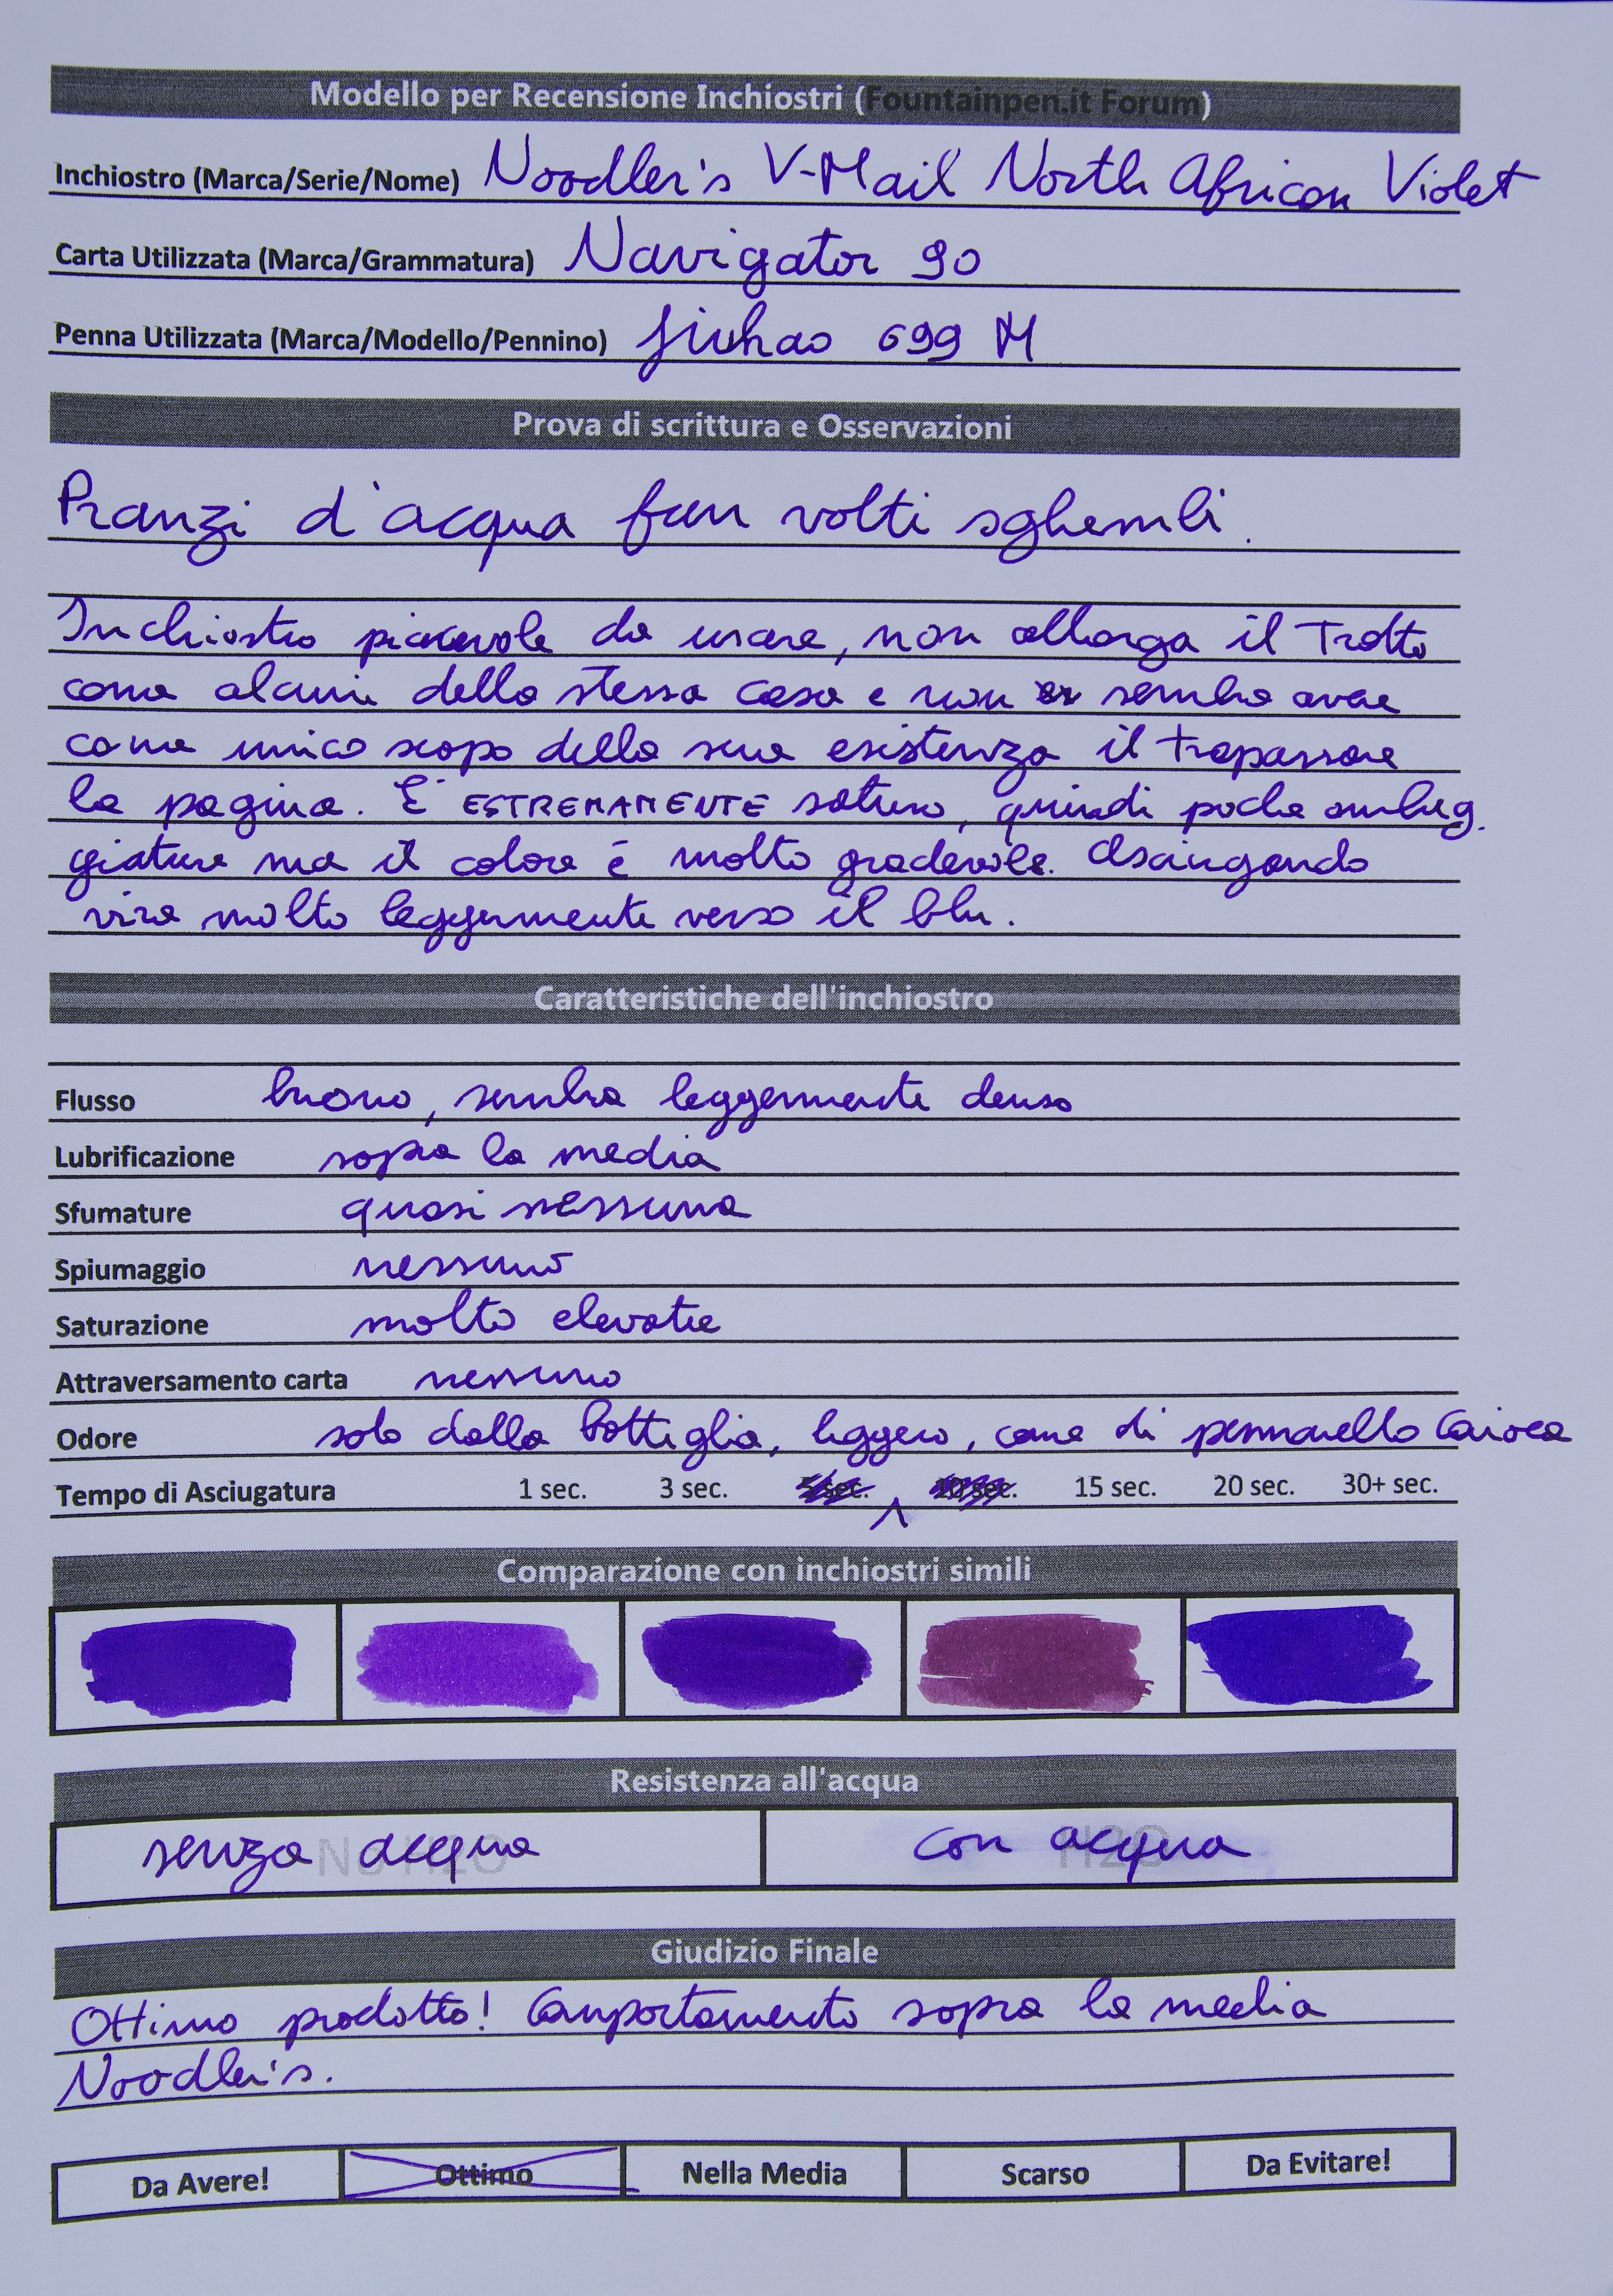 Modello per Recensione Inchiostri (Fountainpen.it Forum)
Inchiostro (Marca/Serie/Nome) Noodler's V-Mail North African Violet
Carta Utilizzata (Marca/Grammatura) Navigator 90
Penna Utilizzata (Marca/Modello/Pennino) Jinhao 699 M
Prova di scrittura e Osservazioni
Pranzi d'acqua fan volti sghembi.
Inchiostro piacevole da usare, non allarga il tratto
come alcuni della stessa casa e non sembra avere
come unico scopo della sua esistenza il trapassare
la pagina. È ESTREMAMENTE saturo, quindi poche ombreg.
giature ma il colore è molto gradevole. Asciugando
vira molto leggermente verso il blu.
Caratteristiche dell'inchiostro
Flusso buono, sembra leggermente denso
Lubrificazione sopra la media
Sfumature quasi nessuna
Spiumaggio nessuno
Saturazione molto elevata
Attraversamento carta nessuno
Odore solo dalla bottiglia, leggero, come di pennarello Carioca
Tempo di Asciugatura 1 sec. 3 sec. 5 sec. 10 sec. 15 sec. 20 sec. 30+ sec.
Comparazione con inchiostri simili
Resistenza all'acqua
senza acqua NO H2O con acqua H2O
Giudizio Finale
Ottimo prodotto! Comportamento sopra la media
Noodler's.
Da Avere! Ottimo Nella Media Scarso Da Evitare!